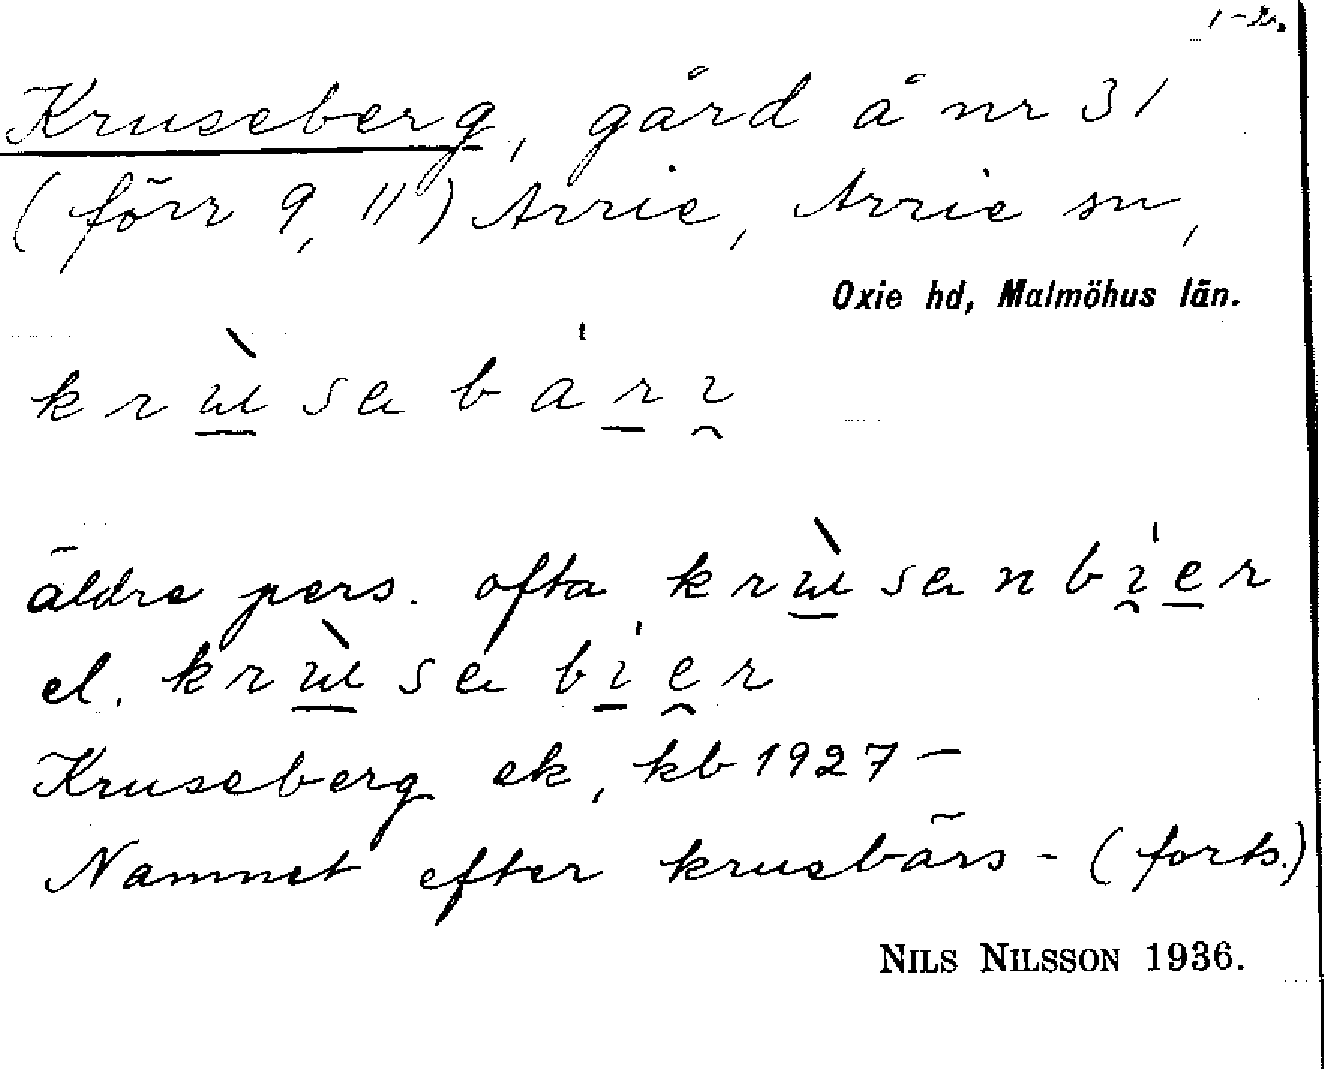 1-2.
Kruseberg, gård å nr 31
(förr 9, 11) Arrie, Arrie sn,
Oxie hd, Malmöhus län.
äldre pers. ofta
el.
Kruseberg ek, kb 1927 —
Namnet efter krusbärs- (forts.)
NILS NILSSON 1936.